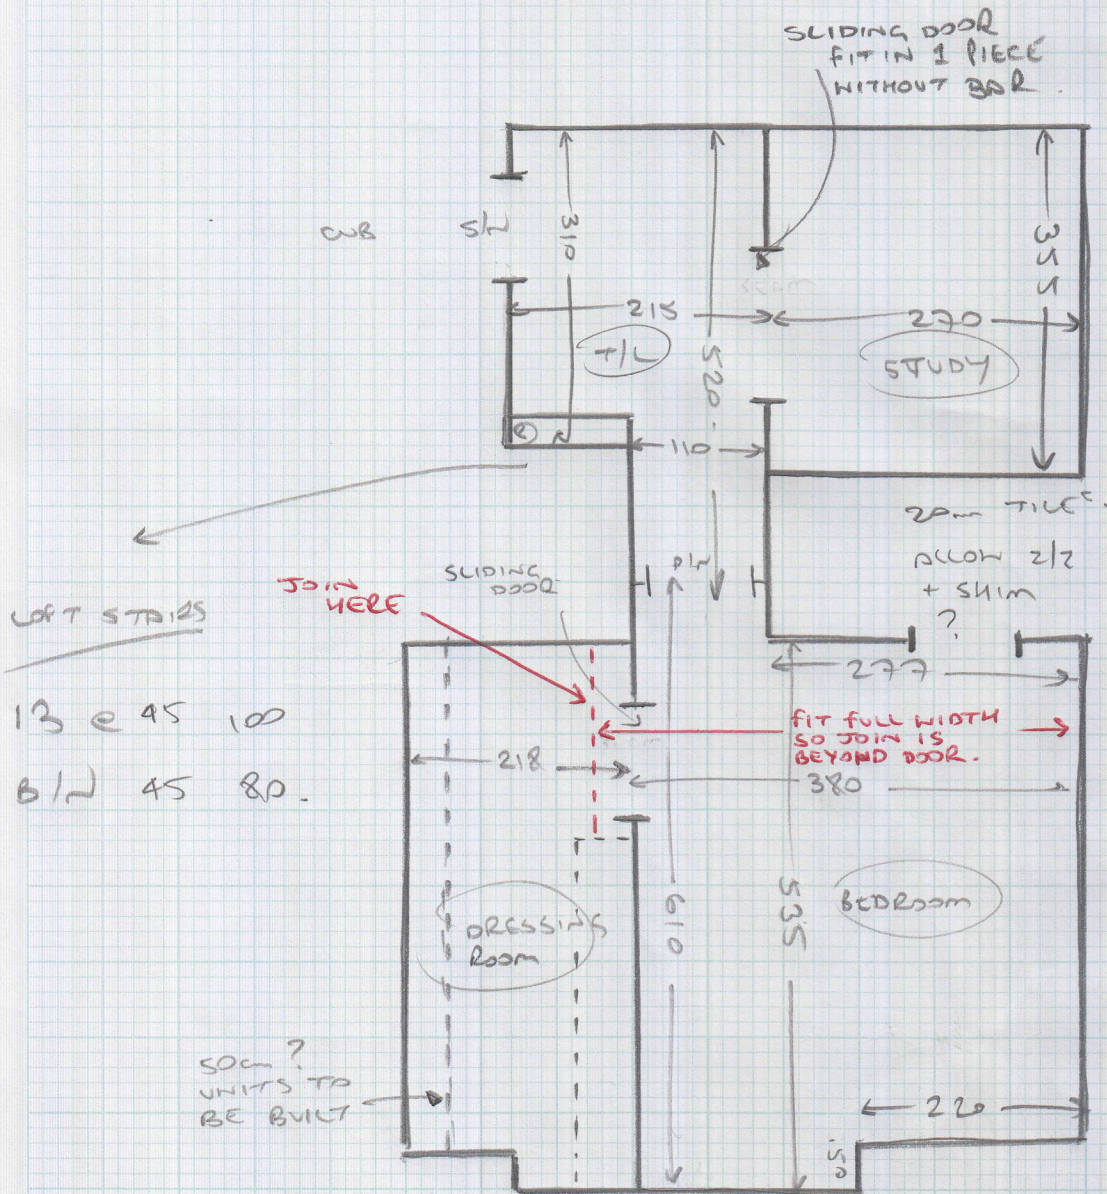 SLIDING DOOR
FIT IN 1 PIECE
WITHOUT BAR.
CUB
S/N
310
355
215
270
T/L
520
STUDY
110
20mm TILES.
ALLOW 2/2
+ SHIM
?
SLIDING
DOOR
JOIN
HERE
LOFT STAIRS
277
13 @ 45 100
FIT FULL WIDTH
SO JOIN IS
BEYOND DOOR.
218
380
B/N 45 80.
610
535
BEDROOM
DRESSING
ROOM
50cm ?
UNITS TO
BE BUILT
220
50